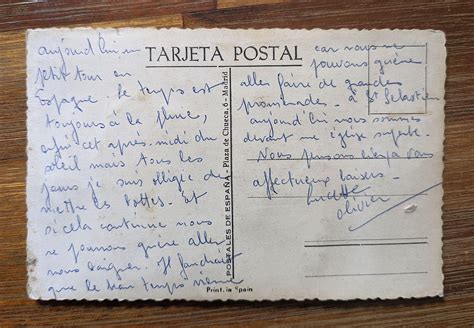 aujourd'hui un
petit tour en
Espagne le temps est
toujours à la pluie,
enfin cet après-midi du
soleil mais tous les
jours je suis obligée de
mettre les bottes. Et
si cela continue nous
ne pourrons guère aller
nous baigner. Il faudrait
que le beau temps vienne
TARJETA POSTAL
POSTALES DE ESPAÑA - Plaza de Chueca, 6 - Madrid
Print. in Spain
car nous ne
pouvons guère
aller faire de grandes
promenades. à St Sébastien
aujourd'hui nous sommes
devant une église superbe.
Nous pensons bien à vous
affectueux baisers.
Lucette
Olivier